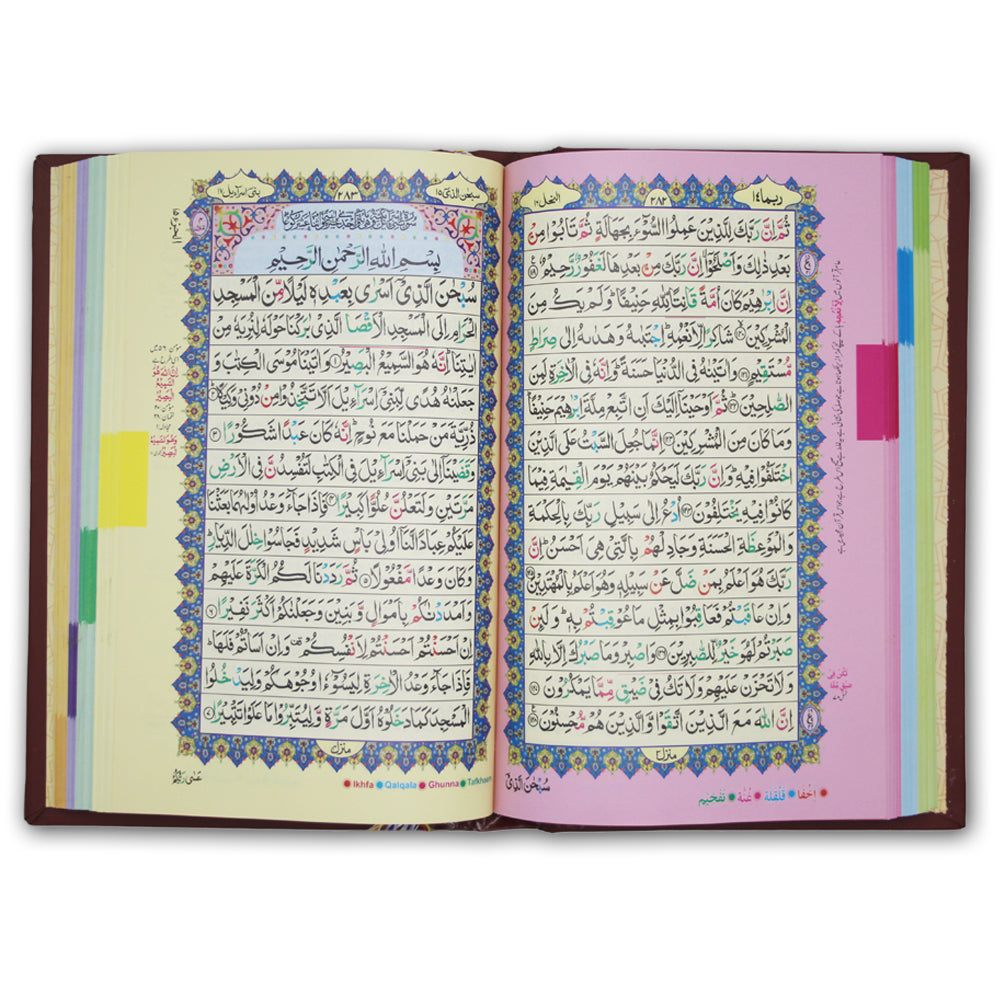 ربما ١٤
٢٨٢
النحل ١٦
ثُمَّ اِنَّ رَبَّكَ لِلَّذِيْنَ عَمِلُوا السُّوْٓءَ بِجَهَالَةٍ ثُمَّ تَابُوْا مِنْۢ
بَعْدِ ذٰلِكَ وَاَصْلَحُوْۤا اِنَّ رَبَّكَ مِنْۢ بَعْدِهَا لَغَفُوْرٌ رَّحِيْمٌ ﴿١١٩﴾
اِنَّ اِبْرٰهِيْمَ كَانَ اُمَّةً قَانِتًا لِّلّٰهِ حَنِيْفًا ؕ وَلَمْ يَكُ مِنَ
الْمُشْرِكِيْنَ ﴿١٢٠﴾ شَاكِرًا لِّاَنْعُمِهٖ ؕ اِجْتَبٰىهُ وَهَدٰىهُ اِلٰى صِرَاطٍ
مُّسْتَقِيْمٍ ﴿١٢١﴾ وَاٰتَيْنٰهُ فِى الدُّنْيَا حَسَنَةً ؕ وَاِنَّهٗ فِى الْاٰخِرَةِ لَمِنَ
الصّٰلِحِيْنَ ﴿١٢٢﴾ ثُمَّ اَوْحَيْنَاۤ اِلَيْكَ اَنِ اتَّبِعْ مِلَّةَ اِبْرٰهِيْمَ حَنِيْفًا ؕ
وَمَا كَانَ مِنَ الْمُشْرِكِيْنَ ﴿١٢٣﴾ اِنَّمَا جُعِلَ السَّبْتُ عَلَى الَّذِيْنَ
اخْتَلَفُوْا فِيْهِ ؕ وَاِنَّ رَبَّكَ لَيَحْكُمُ بَيْنَهُمْ يَوْمَ الْقِيٰمَةِ فِيْمَا
كَانُوْا فِيْهِ يَخْتَلِفُوْنَ ﴿١٢٤﴾ اُدْعُ اِلٰى سَبِيْلِ رَبِّكَ بِالْحِكْمَةِ
وَالْمَوْعِظَةِ الْحَسَنَةِ وَجَادِلْهُمْ بِالَّتِىْ هِىَ اَحْسَنُ ؕ اِنَّ
رَبَّكَ هُوَ اَعْلَمُ بِمَنْ ضَلَّ عَنْ سَبِيْلِهٖ وَهُوَ اَعْلَمُ بِالْمُهْتَدِيْنَ ﴿١٢٥﴾
وَاِنْ عَاقَبْتُمْ فَعَاقِبُوْا بِمِثْلِ مَا عُوْقِبْتُمْ بِهٖ ؕ وَلَئِنْ
صَبَرْتُمْ لَهُوَ خَيْرٌ لِّلصّٰبِرِيْنَ ﴿١٢٦﴾ وَاصْبِرْ وَمَا صَبْرُكَ اِلَّا بِاللّٰهِ
وَلَا تَحْزَنْ عَلَيْهِمْ وَلَا تَكُ فِىْ ضَيْقٍ مِّمَّا يَمْكُرُوْنَ ﴿١٢٧﴾
اِنَّ اللّٰهَ مَعَ الَّذِيْنَ اتَّقَوْا وَّالَّذِيْنَ هُمْ مُّحْسِنُوْنَ ﴿١٢٨﴾
منزل ٣
سُبْحٰنَ الَّذِىْ
اخفا قلقلة غنّة تفخيم
سبحٰن الذی ١٥
٢٨٣
بنی اسرآءیل ١٧
بِسْمِ اللّٰهِ الرَّحْمٰنِ الرَّحِيْمِ
سُبْحٰنَ الَّذِىْۤ اَسْرٰى بِعَبْدِهٖ لَيْلًا مِّنَ الْمَسْجِدِ
الْحَرَامِ اِلَى الْمَسْجِدِ الْاَقْصَا الَّذِىْ بٰرَكْنَا حَوْلَهٗ لِنُرِيَهٗ مِنْ
اٰيٰتِنَا ؕ اِنَّهٗ هُوَ السَّمِيْعُ الْبَصِيْرُ ﴿١﴾ وَاٰتَيْنَا مُوْسَى الْكِتٰبَ وَ
جَعَلْنٰهُ هُدًى لِّبَنِىْۤ اِسْرَآءِيْلَ اَلَّا تَتَّخِذُوْا مِنْ دُوْنِىْ وَكِيْلًا ﴿٢﴾
ذُرِّيَّةَ مَنْ حَمَلْنَا مَعَ نُوْحٍ ؕ اِنَّهٗ كَانَ عَبْدًا شَكُوْرًا ﴿٣﴾
وَقَضَيْنَاۤ اِلٰى بَنِىْۤ اِسْرَآءِيْلَ فِى الْكِتٰبِ لَتُفْسِدُنَّ فِى الْاَرْضِ
مَرَّتَيْنِ وَلَتَعْلُنَّ عُلُوًّا كَبِيْرًا ﴿٤﴾ فَاِذَا جَآءَ وَعْدُ اُوْلٰىهُمَا بَعَثْنَا
عَلَيْكُمْ عِبَادًا لَّنَاۤ اُولِىْ بَاْسٍ شَدِيْدٍ فَجَاسُوْا خِلٰلَ الدِّيَارِ ؕ
وَكَانَ وَعْدًا مَّفْعُوْلًا ﴿٥﴾ ثُمَّ رَدَدْنَا لَكُمُ الْكَرَّةَ عَلَيْهِمْ
وَاَمْدَدْنٰكُمْ بِاَمْوَالٍ وَّبَنِيْنَ وَجَعَلْنٰكُمْ اَكْثَرَ نَفِيْرًا ﴿٦﴾
اِنْ اَحْسَنْتُمْ اَحْسَنْتُمْ لِاَنْفُسِكُمْ ۫ وَاِنْ اَسَاْتُمْ فَلَهَا ؕ
فَاِذَا جَآءَ وَعْدُ الْاٰخِرَةِ لِيَسُوْٓءٗا وُجُوْهَكُمْ وَلِيَدْخُلُوا
الْمَسْجِدَ كَمَا دَخَلُوْهُ اَوَّلَ مَرَّةٍ وَّلِيُتَبِّرُوْا مَا عَلَوْا تَتْبِيْرًا ﴿٧﴾
منزل ٤
عَسٰى رَبُّكُمْ
Ikhfa Qalqala Ghunna Tafkheem